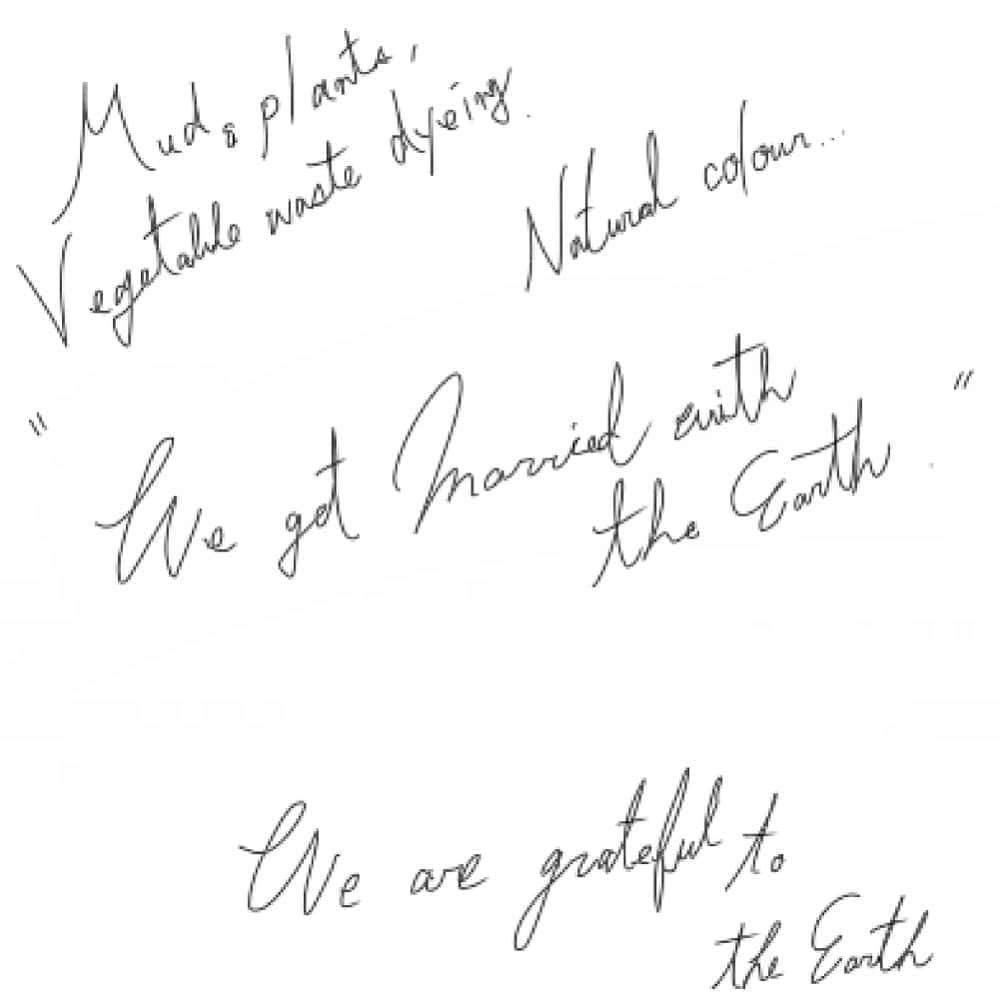 Mud & plants,
Vegetable waste dyeing.
Natural colour...
" We get Married with "
the Earth.
We are grateful to
the Earth